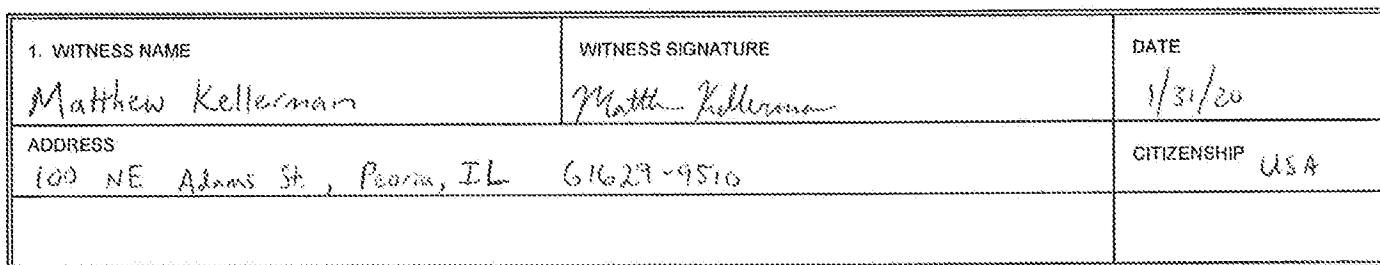 1. WITNESS NAME
Matthew Kellerman
WITNESS SIGNATURE
Matth Kellerman
DATE
1/31/20
ADDRESS
100 NE Adams St, Peoria, IL 61629-9510
CITIZENSHIP USA